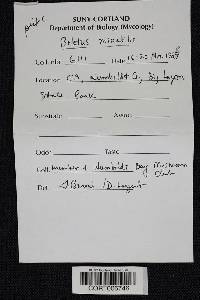 SUNY CORTLAND
Department of Biology (Mycology)
Boletus mirabilis
Coll. No. Date 16-20 Nov.
Location: CA, Humboldt Co, Big Lagoon
State Park
Substrate: Assoc:
Odor: Taste:
Coll. Humboldt Bay Mushroom
Club
Det. D. Largent
CORT006746